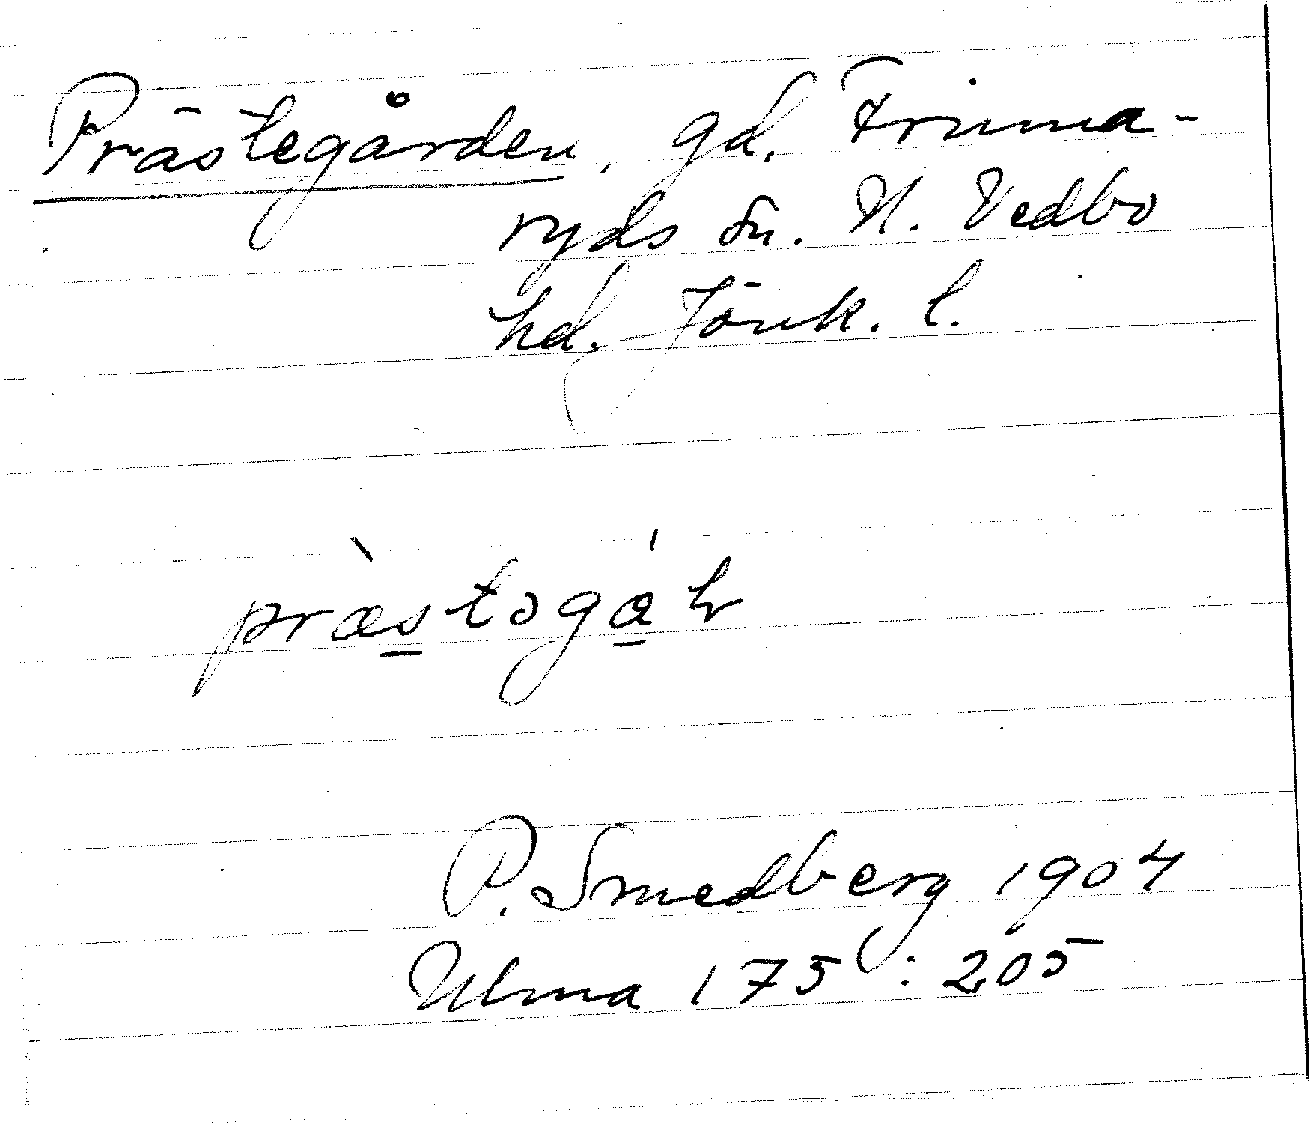 Prästegården, gd. Frinna-
ryds sn. N. Vedbo
hd. Jönk. l.
P. Smedberg 1904
Ulma 175 : 205